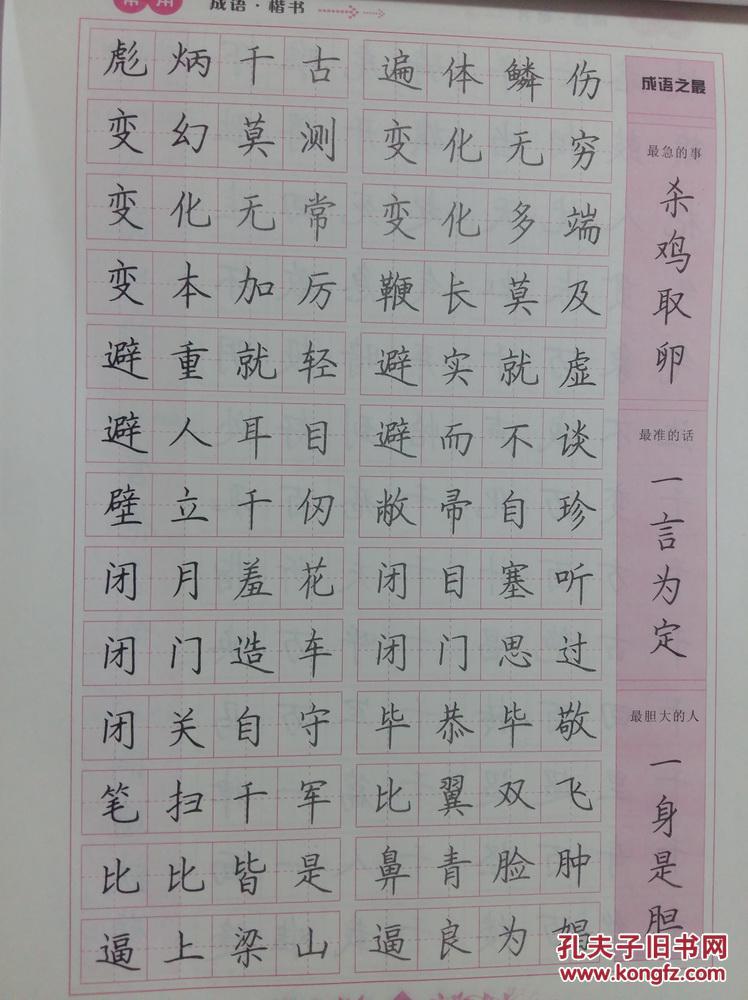 常用 成语·楷书
彪炳千古 遍体鳞伤
变幻莫测 变化无穷
变化无常 变化多端
变本加厉 鞭长莫及
避重就轻 避实就虚
避人耳目 避而不谈
壁立千仞 敝帚自珍
闭月羞花 闭目塞听
闭门造车 闭门思过
闭关自守 毕恭毕敬
笔扫千军 比翼双飞
比比皆是 鼻青脸肿
逼上梁山 逼良为娼
成语之最
最急的事
杀鸡取卵
最准的话
一言为定
最胆大的人
一身是胆
孔夫子旧书网
www.kongfz.com